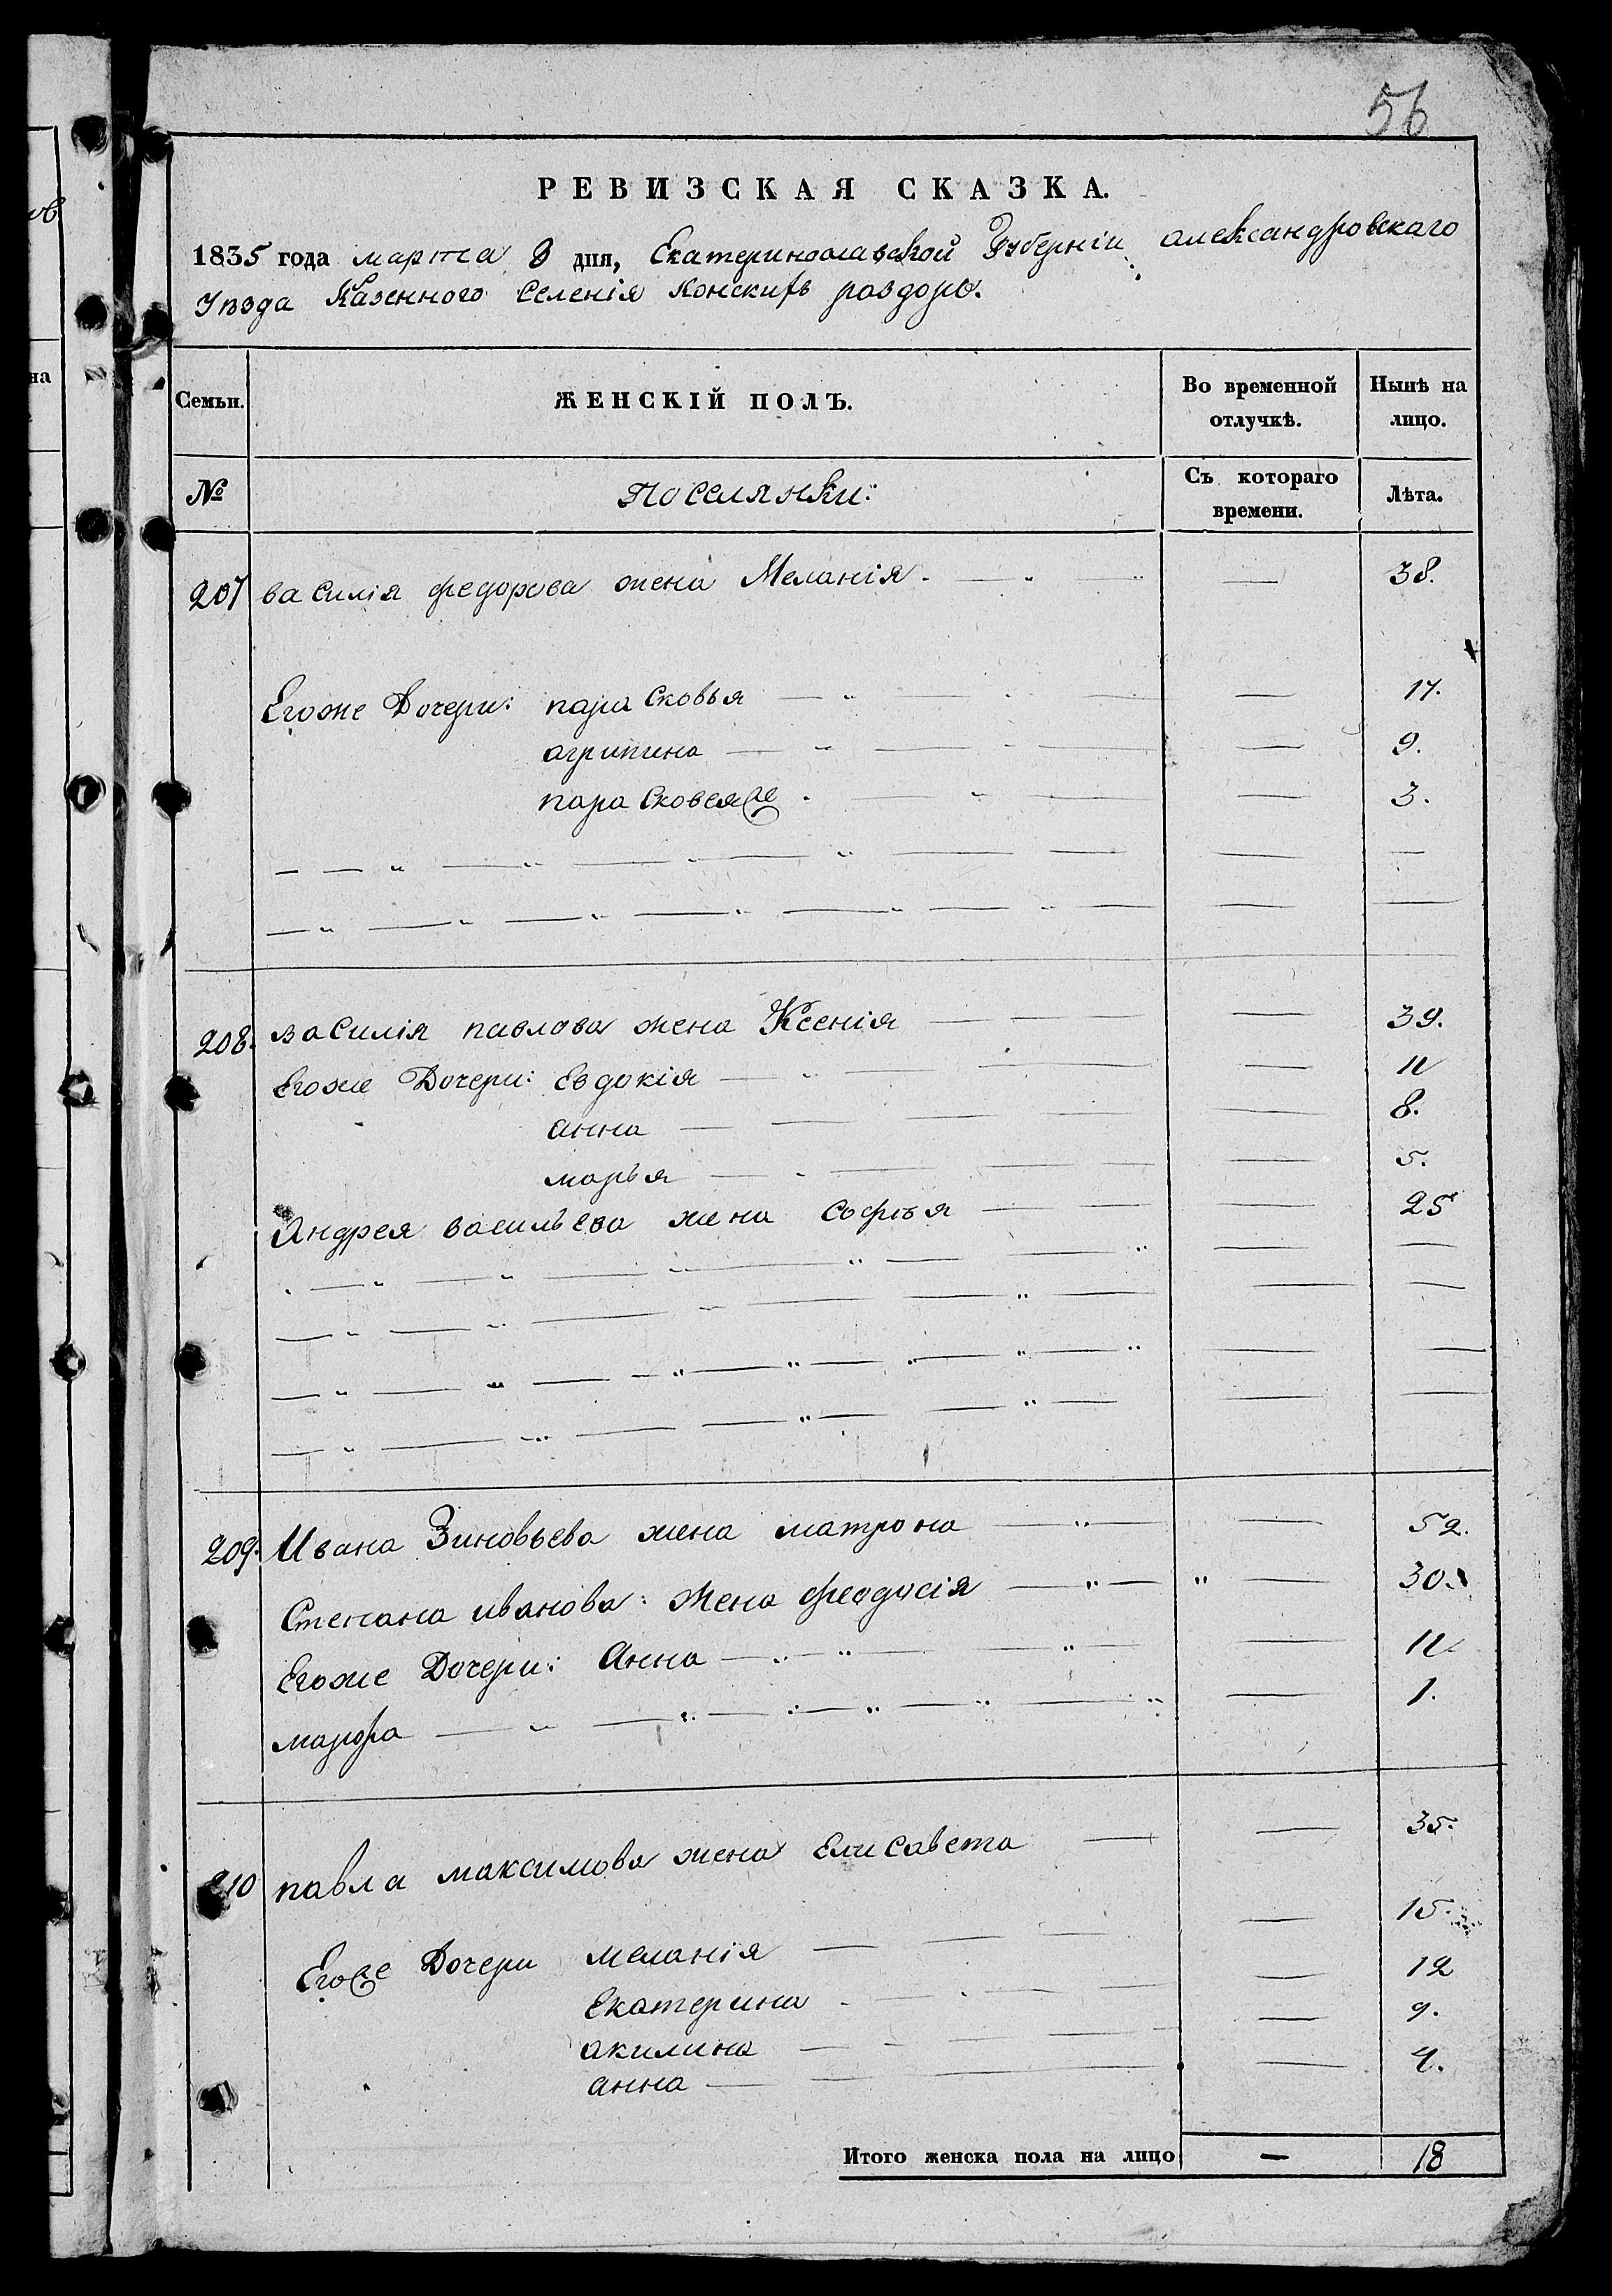 56
РЕВИЗСКАЯ СКАЗКА.
1835 года марта 8 дня, Екатеринославской Губерніи александровскаго
Уѣзда Казенного Селенія Конскихъ раздоръ.
Семьи. ЖЕНСКІЙ ПОЛЪ. Во временной отлучкѣ. Нынѣ на лицо.
№ Поселянки: Съ котораго времени. Лѣта.
207 василія федорова жена Меланія — 38.
Егоже Дочери: парасковья — 17.
агрипина — 9.
парасковеяже — 3.
208. василія павлова жена Ксенія — 39.
Егоже Дочери: Евдокія — 11
анна — 8.
марья — 5.
Андрея васильева жена софья — 25
209. Ивана Зиновьева жена матрона — 52.
Степана иванова: жена феодосія — 30.
Егоже Дочери: Анна — 11
марфа — 1.
210 павла максимова жена Елисавета — 35.
Егоже Дочери меланія — 15.
Екатерина — 12
акилина — 9.
анна — 4.
Итого женска пола на лицо — 18
на